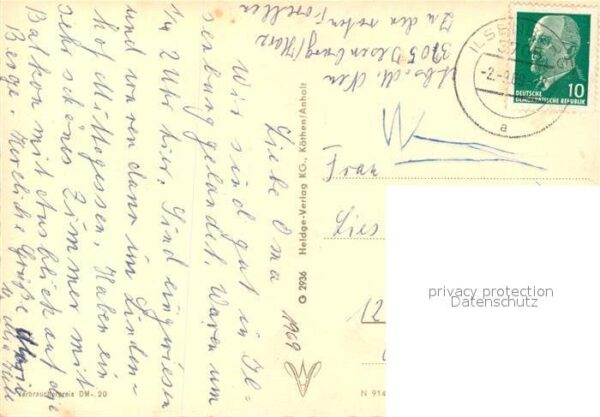 Liebe Oma
Wir sind gut in Il-
senburg gelandet. Waren um
1/4 2 Uhr hier. Sind eingewiesen
und waren dann im Linden-
hof Mittagessen. Haben ein
sehr schönes Zimmer mit
Balkon mit Ausblick auf die
Berge. Herzliche Grüße
1969
3705 Ilsenburg/Harz
Zu den roten Forellen
ILSENBURG
-2.-9.69
a
DEUTSCHE
DEMOKRATISCHE REPUBLIK
10
Frau
Lies
12
© 2936 Heldge-Verlag KG., Köthen/Anhalt
Verbraucherpreis DM -.20
N 914
privacy protection
Datenschutz